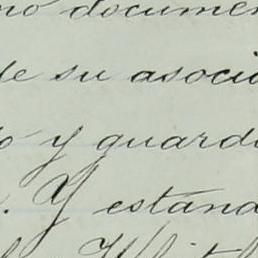 no documen
de su asocia
o y guarda
. Y estand